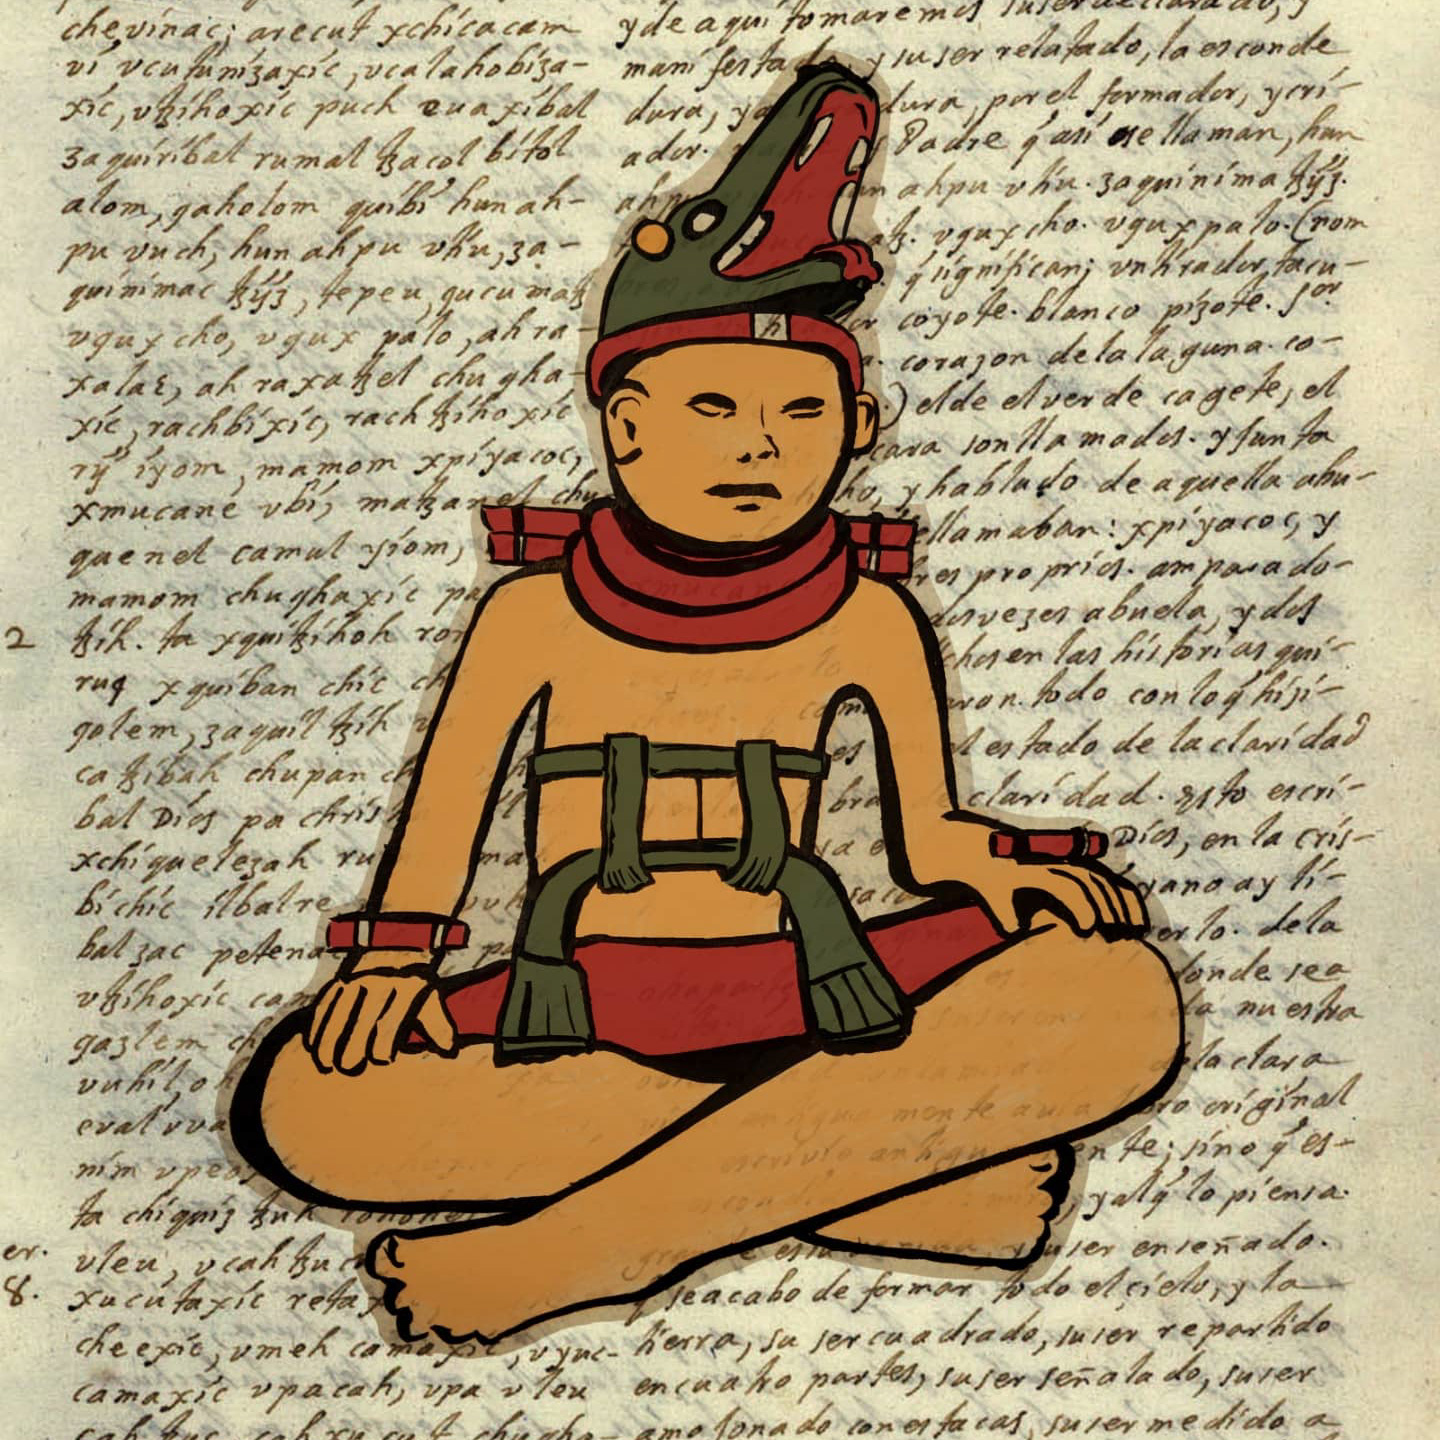 chevinac; arecut xchicacam
vi vcutunizaxic, vcalahobiza-
xic, vtzihoxic puch euaxibal
zaquiribal rumal tzacol bitol
alom, qaholom quibi hun ah-
pu vuch, hun ahpu vhu, za-
quinimac tzyz, tepeu, qucumatz
vquxcho, vqux palo, ah ra-
xalaɛ, ah raxatzel chuqha-
xic, rachbixic, rach tzihoxic
ry iyom, mamom xpiyacoc,
xmucane vbi, matzanel chu
quenel camul yiom,
mamom chuqhaxic pa
2 tzih. ta xquitzihoh ron
ruq xquiban chic ch
qolem, zaquil tzih
ca tzibah chupan ch
bal Dios pa christ
xchiquelezah ru
bichic ilbalre
bal zac petena
vtzihoxic cam
qazlem ch
vuhil, oh
eval vva
nim vpeo
ta chiquiz tzuk
er. vleu, vcah tzuc
8. xucutaxic retax
cheexic, vmeh camaxic, vyuc-
camaxic vpacah, vpa vleu
cah tzuc, cah xucut chuqha-
yde aqui tomaremos su ser declarado, y
manifestado, y su ser relatado, la esconde
dura, ya dura, por el formador, y cri-
ador. Padre q' asi se llaman, hun
ahpu hun ahpu vhu. zaquinima tzyz.
atz. vquxcho. vqux palo. (nom
q' significan; vn tirador, tacu-
coyote. blanco pizote. sor
corazon de la laguna. co-
) el de el verde cagete, el
cara son llamados. y junta
ho, y hablado de aquella abu-
ellamaban: xpiyacoc, y
res proprios. amparado-
dos vezes abuela, y dos
chos en las historias qui-
aron. todo con lo q' hizi-
el estado de la claridad
bra de claridad. Esto escri-
Dios, en la cris-
yano ay li-
verlo. de la
donde sea
nuestra
de la clara
bro original
antiguamente; sino q' es-
, y alq' lo piensa.
grande es su y su ser enseñado.
q' se acabo de formar todo el cielo, y la
tierra, su ser cuadrado, su ser repartido
en cuatro partes, su ser señalado, su ser
amojonado con estacas, su ser medido a